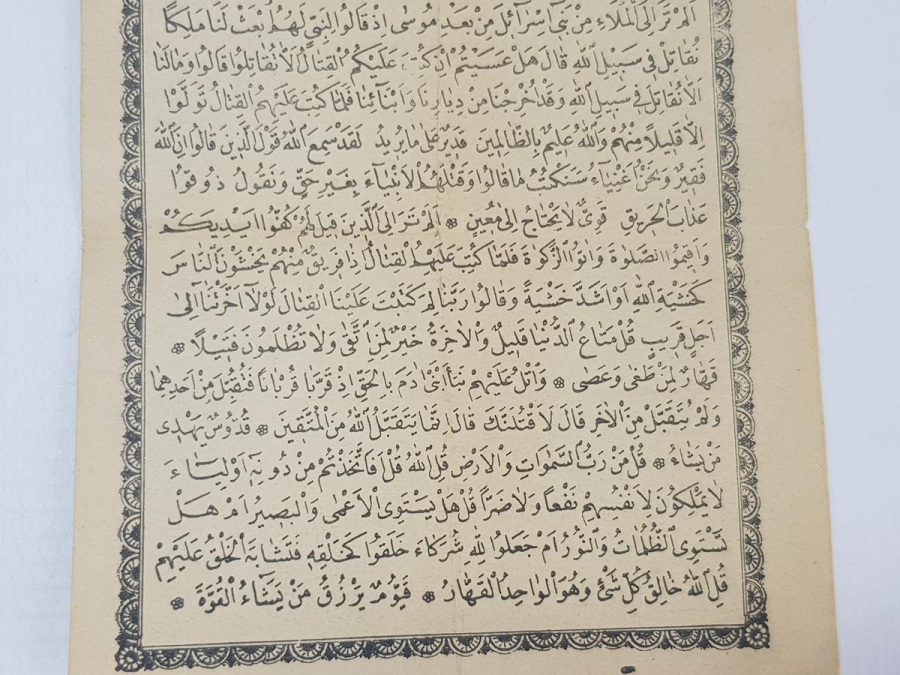 اَلَمْ تَرَ اِلَى الْمَلَاءِ مِنْ بَنِي اِسْرَآئِلَ مِنْ بَعْدِ مُوسٰى اِذْ قَالُوا لِنَبِيٍّ لَهُمُ ابْعَثْ لَنَا مَلِكًا
نُقَاتِلْ فِي سَبِيلِ اللّٰهِ قَالَ هَلْ عَسَيْتُمْ اِنْ كُتِبَ عَلَيْكُمُ الْقِتَالُ اَلَّا تُقَاتِلُوا قَالُوا وَمَالَنَا
اَلَّا نُقَاتِلَ فِي سَبِيلِ اللّٰهِ وَقَدْ اُخْرِجْنَا مِنْ دِيَارِنَا وَاَبْنَائِنَا فَلَمَّا كُتِبَ عَلَيْهِمُ الْقِتَالُ تَوَلَّوْا
اِلَّا قَلِيلًا مِنْهُمْ وَاللّٰهُ عَلِيمٌ بِالظَّالِمِينَ قَدِيرٌ عَلٰى مَا يُرِيدُ لَقَدْ سَمِعَ اللّٰهُ قَوْلَ الَّذِينَ قَالُوا اِنَّ اللّٰهَ
فَقِيرٌ وَنَحْنُ اَغْنِيَآءُ سَنَكْتُبُ مَا قَالُوا وَقَتْلَهُمُ الْاَنْبِيَآءَ بِغَيْرِ حَقٍّ وَنَقُولُ ذُوقُوا
عَذَابَ الْحَرِيقِ قَوِيٌّ لَا يَحْتَاجُ اِلٰى مُعِينٍ ۞ اَلَمْ تَرَ اِلَى الَّذِينَ قِيلَ لَهُمْ كُفُّوا اَيْدِيَكُمْ
وَاَقِيمُوا الصَّلٰوةَ وَاٰتُوا الزَّكٰوةَ فَلَمَّا كُتِبَ عَلَيْهِمُ الْقِتَالُ اِذَا فَرِيقٌ مِنْهُمْ يَخْشَوْنَ النَّاسَ
كَخَشْيَةِ اللّٰهِ اَوْ اَشَدَّ خَشْيَةً وَقَالُوا رَبَّنَا لِمَ كَتَبْتَ عَلَيْنَا الْقِتَالَ لَوْلَآ اَخَّرْتَنَا اِلٰى
اَجَلٍ قَرِيبٍ قُلْ مَتَاعُ الدُّنْيَا قَلِيلٌ وَالْاٰخِرَةُ خَيْرٌ لِمَنِ اتَّقٰى وَلَا تُظْلَمُونَ فَتِيلًا ۞
قَهَّارٌ لِمَنْ طَغٰى وَعَصٰى ۞ وَاتْلُ عَلَيْهِمْ نَبَاَ ابْنَيْ اٰدَمَ بِالْحَقِّ اِذْ قَرَّبَا قُرْبَانًا فَتُقُبِّلَ مِنْ اَحَدِهِمَا
وَلَمْ يُتَقَبَّلْ مِنَ الْاٰخَرِ قَالَ لَاَقْتُلَنَّكَ قَالَ اِنَّمَا يَتَقَبَّلُ اللّٰهُ مِنَ الْمُتَّقِينَ ۞ قُدُّوسٌ يَهْدِى
مَنْ يَشَاءُ ۞ قُلْ مَنْ رَبُّ السَّمٰوَاتِ وَالْاَرْضِ قُلِ اللّٰهُ قُلْ اَفَاتَّخَذْتُمْ مِنْ دُونِهٖ اَوْلِيَآءَ
لَا يَمْلِكُونَ لِاَنْفُسِهِمْ نَفْعًا وَلَا ضَرًّا قُلْ هَلْ يَسْتَوِى الْاَعْمٰى وَالْبَصِيرُ اَمْ هَلْ
تَسْتَوِى الظُّلُمَاتُ وَالنُّورُ اَمْ جَعَلُوا لِلّٰهِ شُرَكَاءَ خَلَقُوا كَخَلْقِهٖ فَتَشَابَهَ الْخَلْقُ عَلَيْهِمْ
قُلِ اللّٰهُ خَالِقُ كُلِّ شَيْءٍ وَهُوَ الْوَاحِدُ الْقَهَّارُ ۞ قَيُّومٌ يَرْزُقُ مَنْ يَشَآءُ الْقُوَّةَ ۞